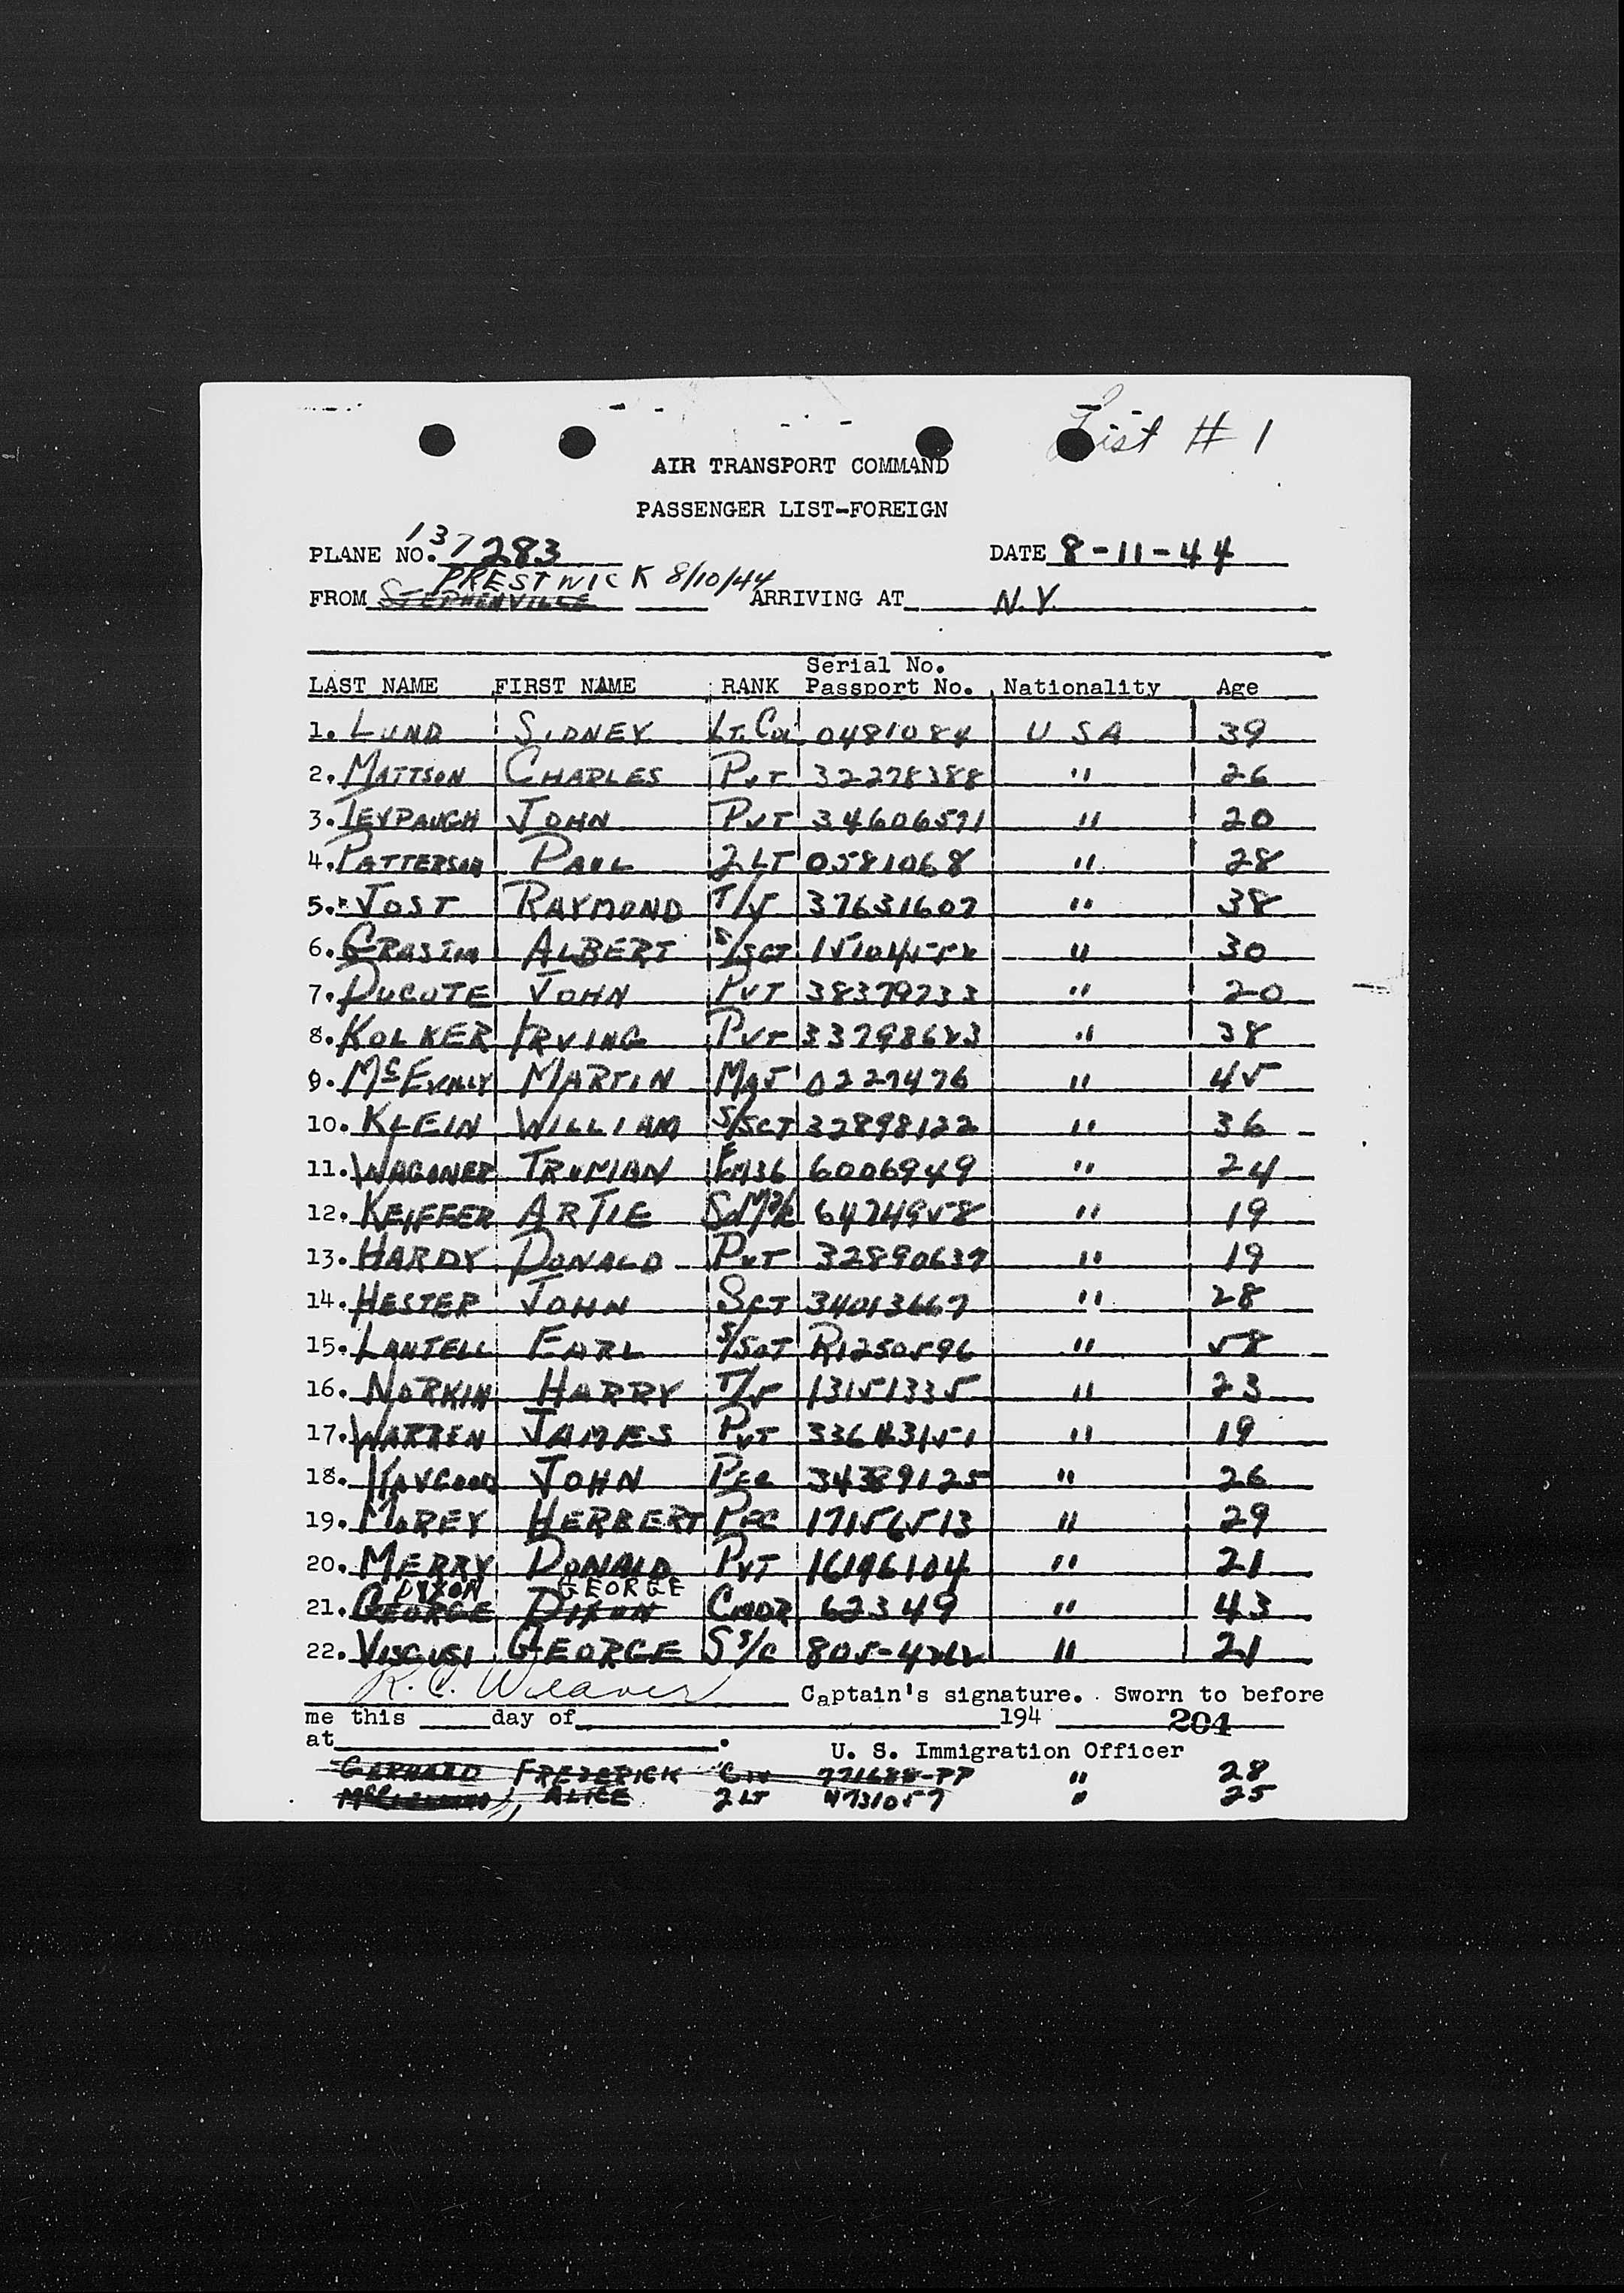 List # 1
AIR TRANSPORT COMMAND
PASSENGER LIST-FOREIGN
137
PLANE NO. 283 DATE 8-11-44
PRESTWICK 8/10/44
FROM STEPHENVILLE ARRIVING AT N.Y.
Serial No.
LAST NAME FIRST NAME RANK Passport No. Nationality Age
1. LUND SIDNEY LT. COL 0481084 USA 39
2. MATTSON CHARLES PVT 32278388 " 26
3. TEVPAUGH JOHN PVT 34606571 " 20
4. PATTERSON PAUL 2 LT 0581068 " 28
5. JOST RAYMOND T/5 37631607 " 38
6. ALBERT S/SGT " 30
7. DUCOTE JOHN PVT 38379733 " 20
8. KOLKER IRVING PVT 33798623 " 38
9. MCEVILLY MARTIN MAJ 0227476 " 45
10. KLEIN WILLIAM S/SGT 32898122 " 36
11. WAGONER TRUMAN 6006949 " 24
12. KEIFFER ARTIE 6474958 " 19
13. HARDY DONALD PVT 32890637 " 19
14. HESTER JOHN SGT 34013667 " 28
15. LANTELL EARL S/SGT R1250596 " 58
16. NORKIN HARRY T/5 13151335 " 23
17. WARREN JAMES PVT " 19
18. HAYGOOD JOHN PFC 34389125 " 26
19. MOREY HERBERT PFC 17156513 " 29
20. MERRY DONALD PVT 16196104 " 21
DIXON GEORGE
21. GEORGE DIXON CMDR 62349 " 43
22. VISCUSI GEORGE S S/C " 21
R. C. Weaver Captain's signature. Sworn to before
me this day of 194 204
at .
U. S. Immigration Officer
GERHARD FREDERICK CIV 771688-PP " 28
ALICE 2 LT 4731057 " 25